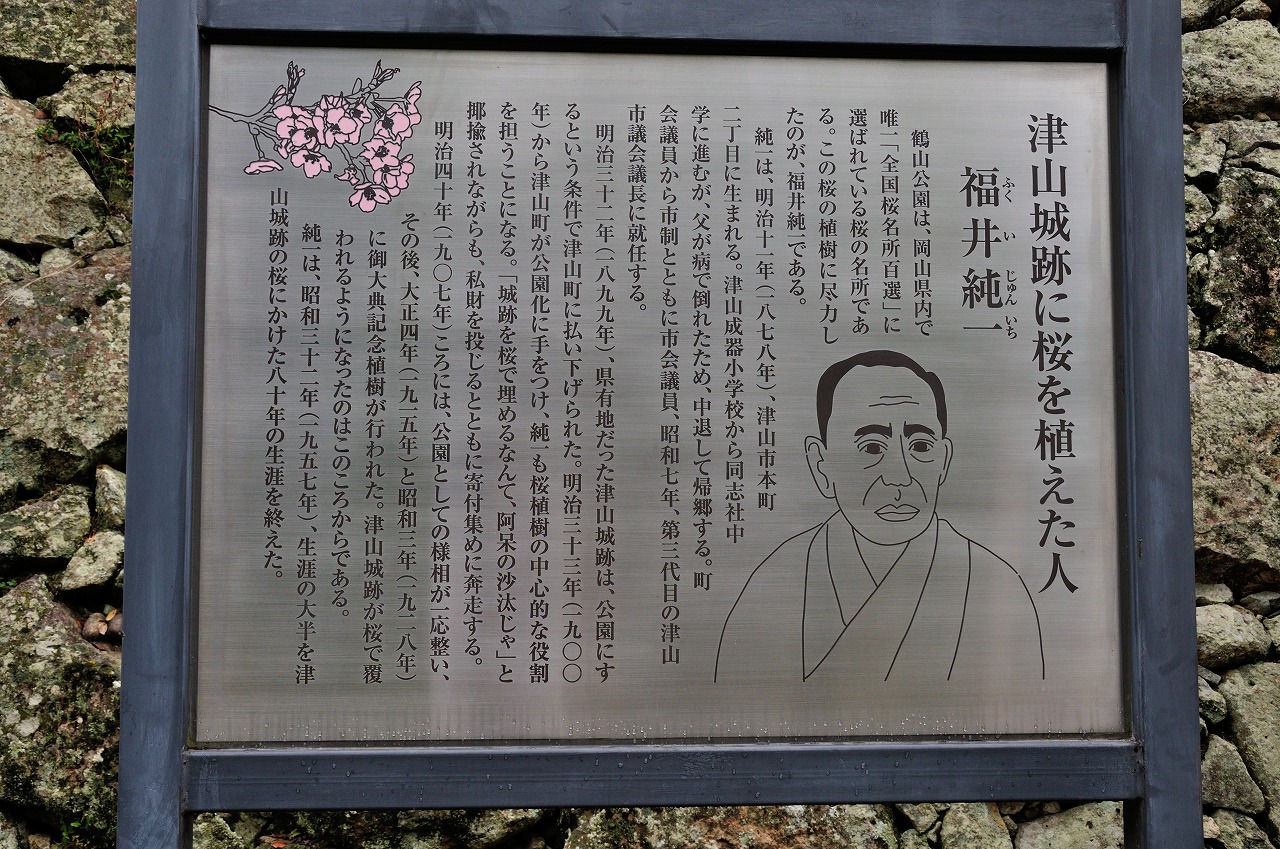 津山城跡に桜を植えた人
福井純一
ふく い じゅん いち
鶴山公園は、岡山県内で
唯一「全国桜名所百選」に
選ばれている桜の名所であ
る。この桜の植樹に尽力し
たのが、福井純一である。
純一は、明治十一年(一八七八年)、津山市本町
二丁目に生まれる。津山成器小学校から同志社中
学に進むが、父が病で倒れたため、中退して帰郷する。町
会議員から市制とともに市会議員、昭和七年、第三代目の津山
市議会議長に就任する。
明治三十二年(一八九九年)、県有地だった津山城跡は、公園にす
るという条件で津山町に払い下げられた。明治三十三年(一九〇〇
年)から津山町が公園化に手をつけ、純一も桜植樹の中心的な役割
を担うことになる。「城跡を桜で埋めるなんて、阿呆の沙汰じゃ」と
揶揄されながらも、私財を投じるとともに寄付集めに奔走する。
明治四十年(一九〇七年)ころには、公園としての様相が一応整い、
その後、大正四年(一九一五年)と昭和三年(一九二八年)
に御大典記念植樹が行われた。津山城跡が桜で覆
われるようになったのはこのころからである。
純一は、昭和三十二年(一九五七年)、生涯の大半を津
山城跡の桜にかけた八十年の生涯を終えた。